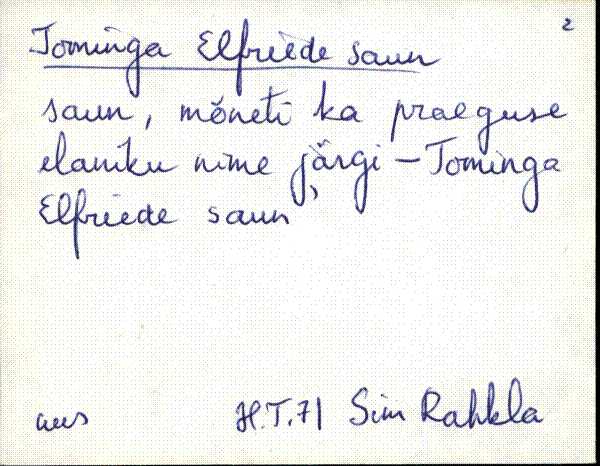 2
Tominga Elfriede saun
saun, mõneti ka praeguse
elaniku nime järgi – Tominga
Elfriede saun
H.T.71 Sim Rahkla